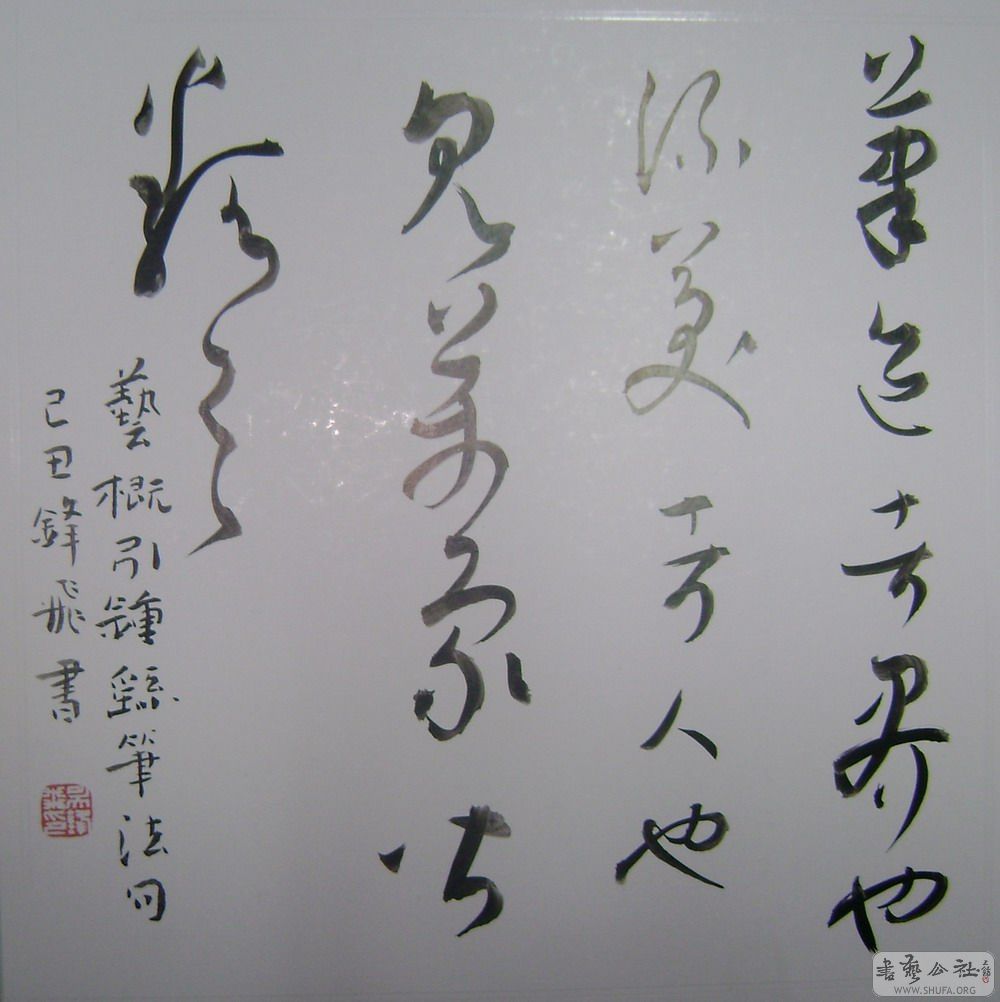 筆迹者界也
流美者人也
見萬象皆
類之
藝概引鍾繇筆法句
己丑鋒飛書
書藝公社
WWW.SHUFA.ORG